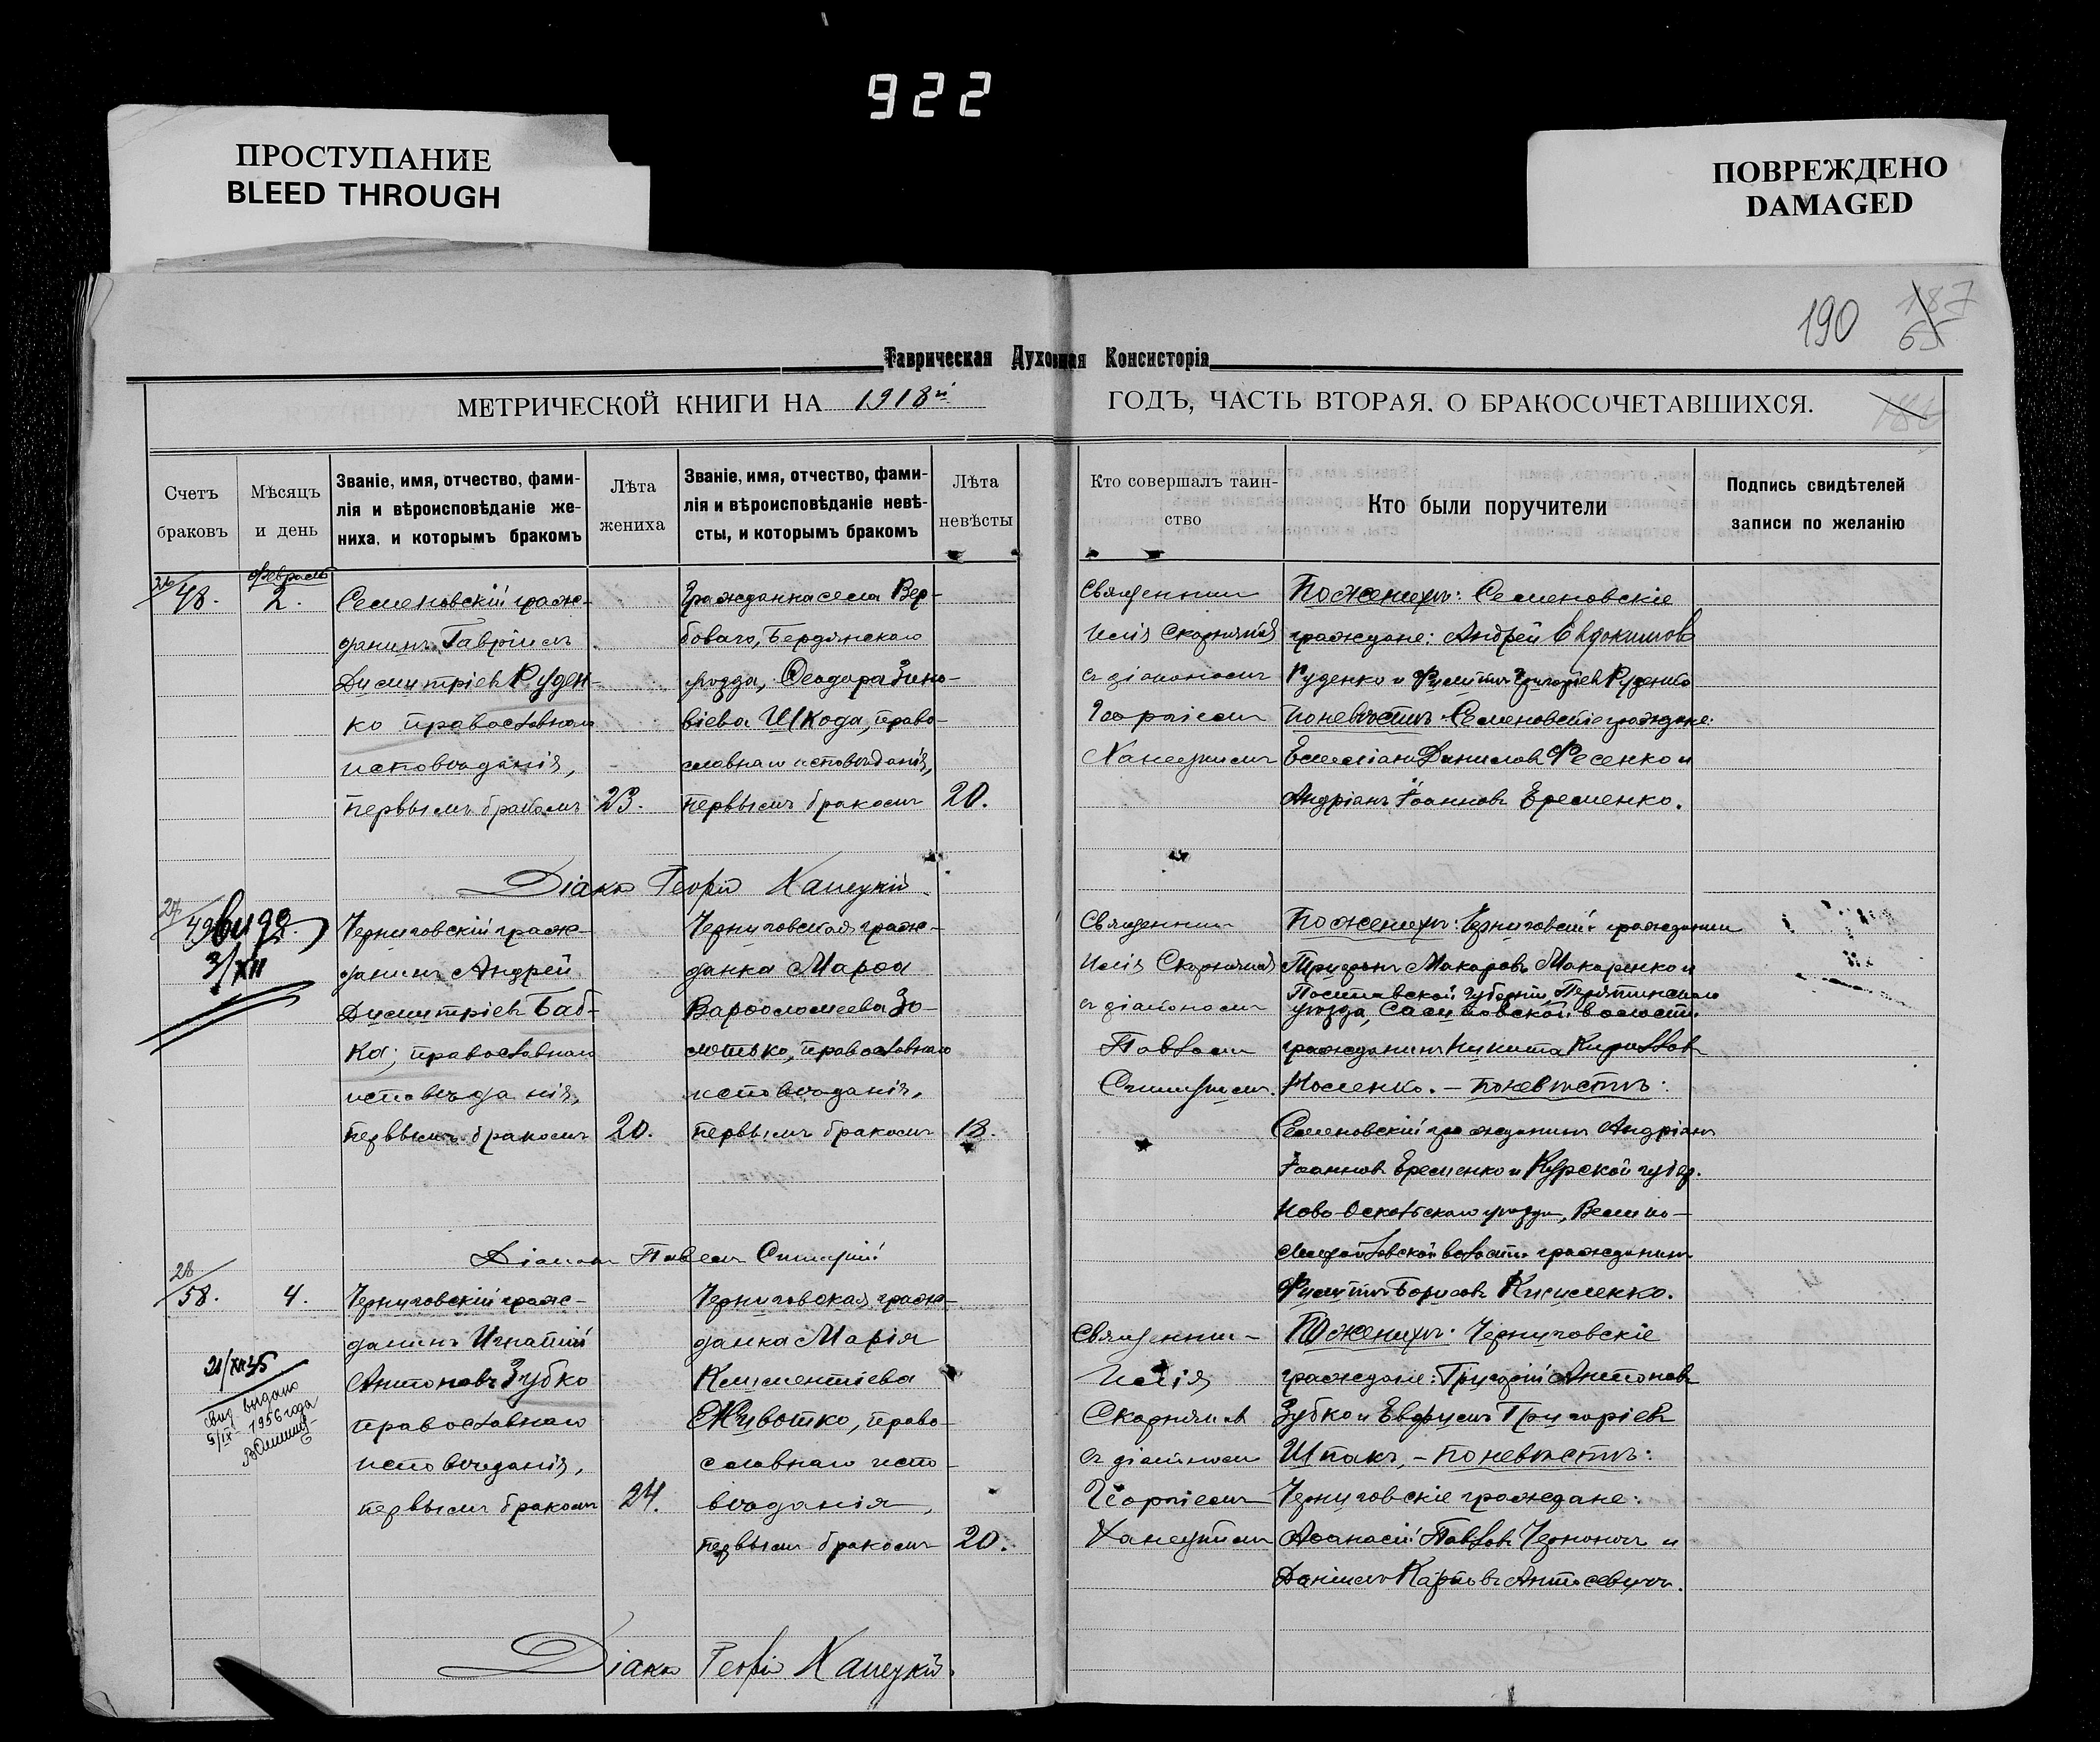 922
ПРОСТУПАНИЕ
BLEED THROUGH
ПОВРЕЖДЕНО
DAMAGED
190
187
65
Таврическая Духовная Консисторія
МЕТРИЧЕСКОЙ КНИГИ НА 1918й ГОДЪ, ЧАСТЬ ВТОРАЯ, О БРАКОСОЧЕТАВШИХСЯ.
Счетъ
браковъ
Мѣсяцъ
и день
Званіе, имя, отчество, фами-
лія и вѣроисповѣданіе же-
ниха, и которымъ бракомъ
Лѣта
жениха
Званіе, имя, отчество, фами-
лія и вѣроисповѣданіе невѣ-
сты, и которымъ бракомъ
Лѣта
невѣсты
Кто совершалъ таин-
ство
Кто были поручители
Подпись свидѣтелей
записи по желанію
26/48.
февраль
2.
Семеновскій граж-
данинъ Гавріилъ
Димитріевъ Руден-
ко православнаго
исповѣданія,
первымъ бракомъ
23.
Гражданка села Вер-
боваго, Бердянскаго
уѣзда, Ѳеодора Зино-
віева Шкода, право-
славнаго исповѣданія,
первымъ бракомъ
20.
Священник
Илія Скорняков
съ діакономъ
Георгіемъ
Ханецкимъ
По женихѣ: Семеновскіе
граждане: Андрей Евдокимовъ
Руденко и Филиппъ Григоріевъ Руденко
По невѣстѣ: Семеновскіе граждане:
Емеліанъ Даниловъ Фесенко и
Андріанъ Іоанновъ Еременко.
Діакон Георгій Ханецкій
27/49
3/XII
Черниговскій граж-
данинъ Андрей
Димитріевъ Баб-
ка, православнаго
исповѣданія,
первымъ бракомъ
20.
Черниговская граж-
данка Марѳа
Варѳоломеева Зо-
лотько, православнаго
исповѣданія,
первымъ бракомъ
18.
Священник
Илія Скорняков
съ діакономъ
Павломъ
По женихѣ: Черниговскій гражданин
Трифонъ Макаровъ Макаренко и
Полтавской губерніи, Пирятинскаго
уѣзда, волости
гражданинъ Никита Кирилловъ
Носенко. – По невѣстѣ:
Семеновскій гражданинъ Андріанъ
Іоанновъ Еременко и Курской губер.
Ново-Оскольскаго уѣзда, Велико-
Михайловской волости гражданинъ
Филиппъ Борисовъ Кисиленко.
Діаконъ Павелъ
28/58.
4.
21/XII 45
Свид. выдано
5/IX 1956 года
Черниговскій граж-
данинъ Игнатій
Антоновъ Зубко
православнаго
исповѣданія,
первымъ бракомъ
24.
Черниговская граж-
данка Марія
Климентіева
Животко, право-
славнаго испо-
вѣданія,
первымъ бракомъ
20.
Священник
Илія
Скорняков
съ діакономъ
Георгіемъ
Ханецкимъ
По женихѣ: Черниговскіе
граждане: Григорій Антоновъ
Зубко и Евфимъ Григоріевъ
Шпакъ, – По невѣстѣ:
Черниговскіе граждане:
Аѳанасій Павловъ и
Даніилъ Карповъ
Діакон Георгій Ханецкій